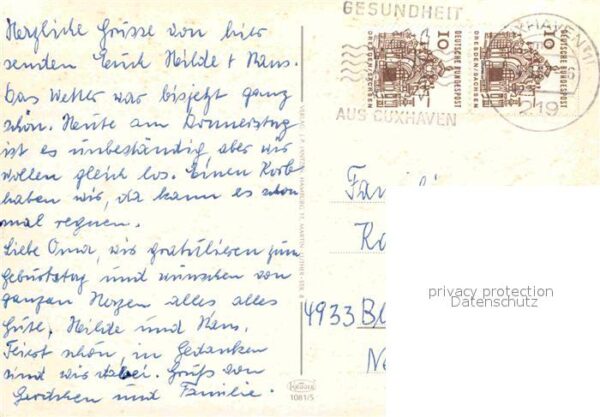 Herzliche Grüsse von hier
senden Euch Hilde + Hans.
Das Wetter war bisjetzt ganz
schön. Heute am Donnerstag
ist es unbeständig aber wir
wollen gleich los. Einen Korb
haben wir, da kann es schon
mal regnen.
Liebe Oma, wir gratulieren zum
Geburtstag und wünschen von
ganzen Herzen alles alles
Gute, Hilde und Hans.
Feiert schön, in Gedanken
sind wir dabei. Gruß von
und Familie.
GESUNDHEIT
AUS CUXHAVEN
10
DEUTSCHE BUNDESPOST
DRESDEN-SACHSEN
10
DEUTSCHE BUNDESPOST
DRESDEN-SACHSEN
CUXHAVEN
219
Fa
4933 Bl
Ne
Krüger
1081/5
privacy protection
Datenschutz